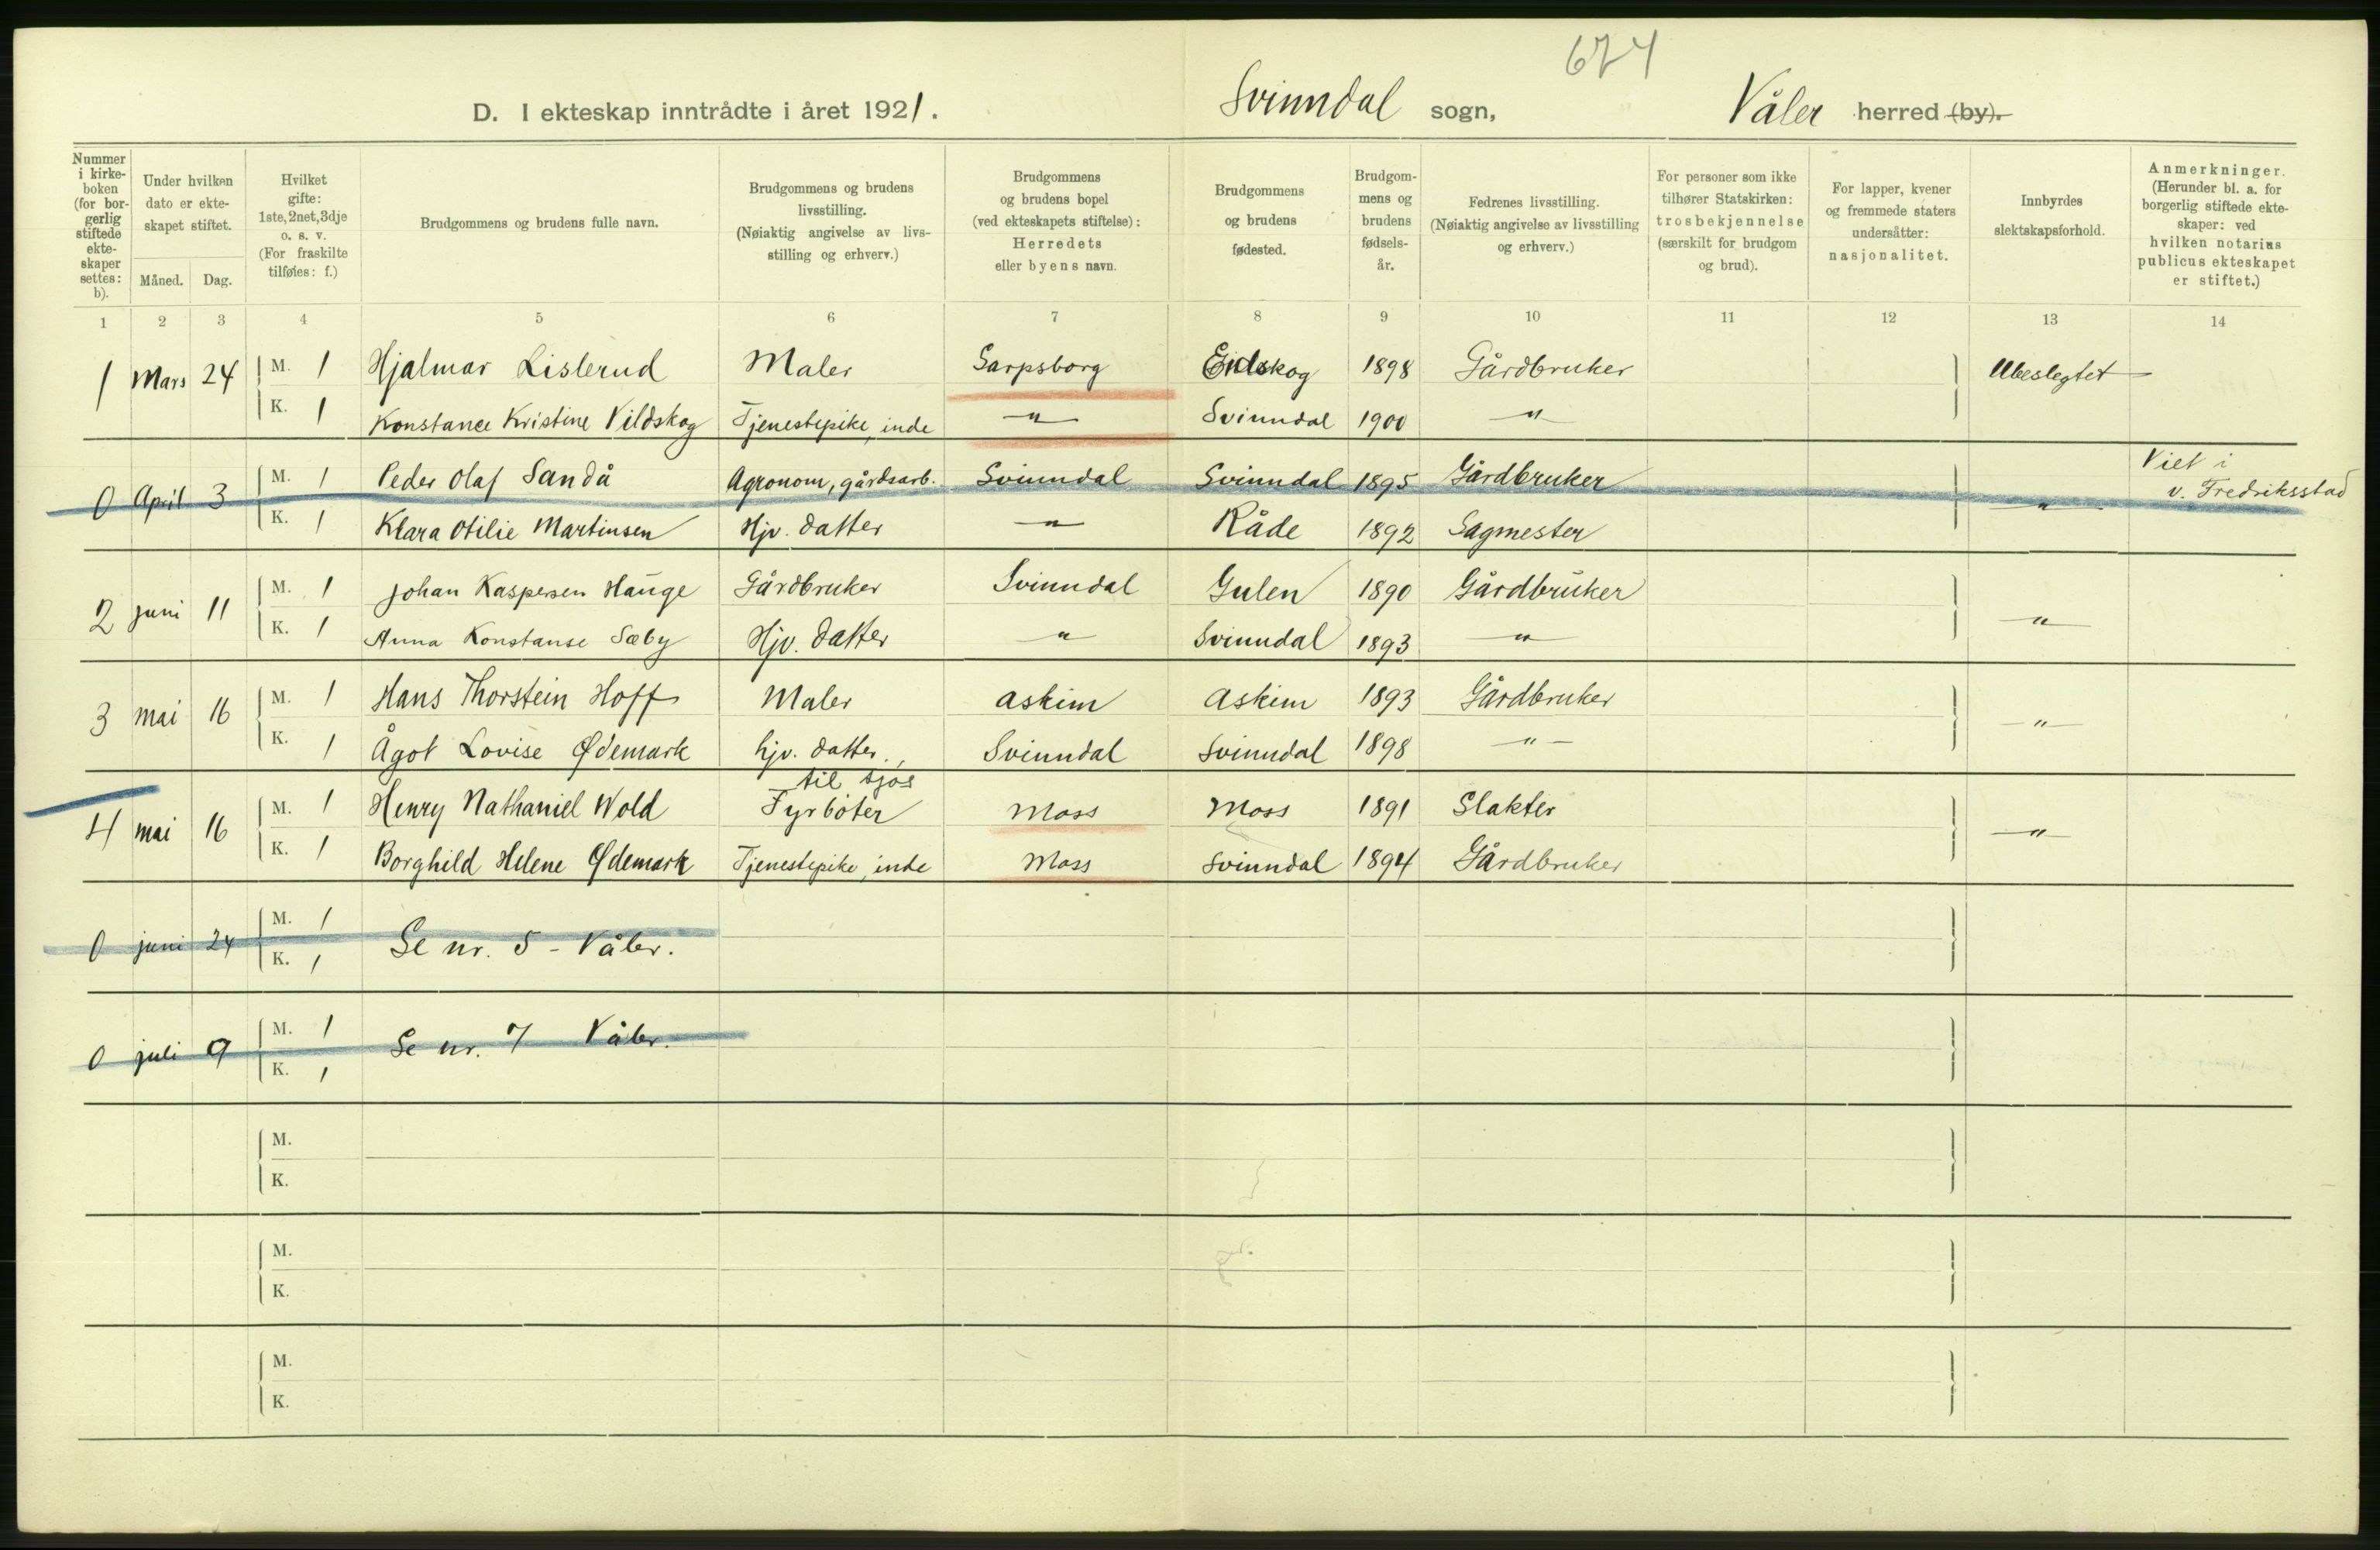 674
D. I ekteskap inntrådte i året 1921. Svinndal sogn, Våler herred (by).
Nummer i kirke- boken (for bor- gerlig stiftede ekte- skaper settes: b).
Under hvilken dato er ekte- skapet stiftet.
Måned. Dag.
Hvilket gifte: 1ste, 2net, 3dje o. s. v. (For fraskilte tilføies: f.)
Brudgommens og brudens fulle navn.
Brudgommens og brudens livsstilling. (Nøiaktig angivelse av livs- stilling og erhverv.)
Brudgommens og brudens bopel (ved ekteskapets stiftelse): Herredets eller byens navn.
Brudgommens og brudens fødested.
Brudgom- mens og brudens fødsels- år.
Fedrenes livsstilling. (Nøiaktig angivelse av livsstilling og erhverv.)
For personer som ikke tilhører Statskirken: trosbekjennelse (særskilt for brudgom og brud).
For lapper, kvener og fremmede staters undersåtter: nasjonalitet.
Innbyrdes slektskapsforhold.
Anmerkninger. (Herunder bl. a. for borgerlig stiftede ekte- skaper: ved hvilken notarius publicus ekteskapet er stiftet.)
1 2 3 4 5 6 7 8 9 10 11 12 13 14
1 Mars 24 M. 1 Hjalmar Lislerud Maler Sarpsborg Eidskog 1898 Gårdbruker Ubeslegtet
K. 1 Konstance Kristine Vildskog Tjenestepike, inde " Svinndal 1900 "
0 April 3 M. 1 Peder Olaf Sandå Agronom, gårdsarb. Svinndal Svinndal 1895 Gårdbruker " Viet i v. Fredriksstad
K. 1 Klara Otilie Martinsen Hjv. datter " Råde 1892 Sagmester
2 juni 11 M. 1 Johan Kaspersen Hauge Gårdbruker Svinndal Gulen 1890 Gårdbruker "
K. 1 Anna Konstanse Sæby Hjv. datter " Svinndal 1893 "
3 mai 16 M. 1 Hans Thorstein Hoff Maler Askim Askim 1893 Gårdbruker "
K. 1 Ågot Lovise Ødemark hjv. datter. Svinndal Svinndal 1898 "
4 mai 16 M. 1 Henry Nathaniel Wold Fyrbøter til sjøs Moss Moss 1891 Slakter "
K. 1 Borghild Helene Ødemark Tjenestepike, inde Moss Svinndal 1894 Gårdbruker
0 juni 24 M. 1 Se nr. 5 - Våler.
K. 1
0 juli 9 M. 1 Se nr. 7 Våler.
K. 1
M.
K.
M.
K.
M.
K.